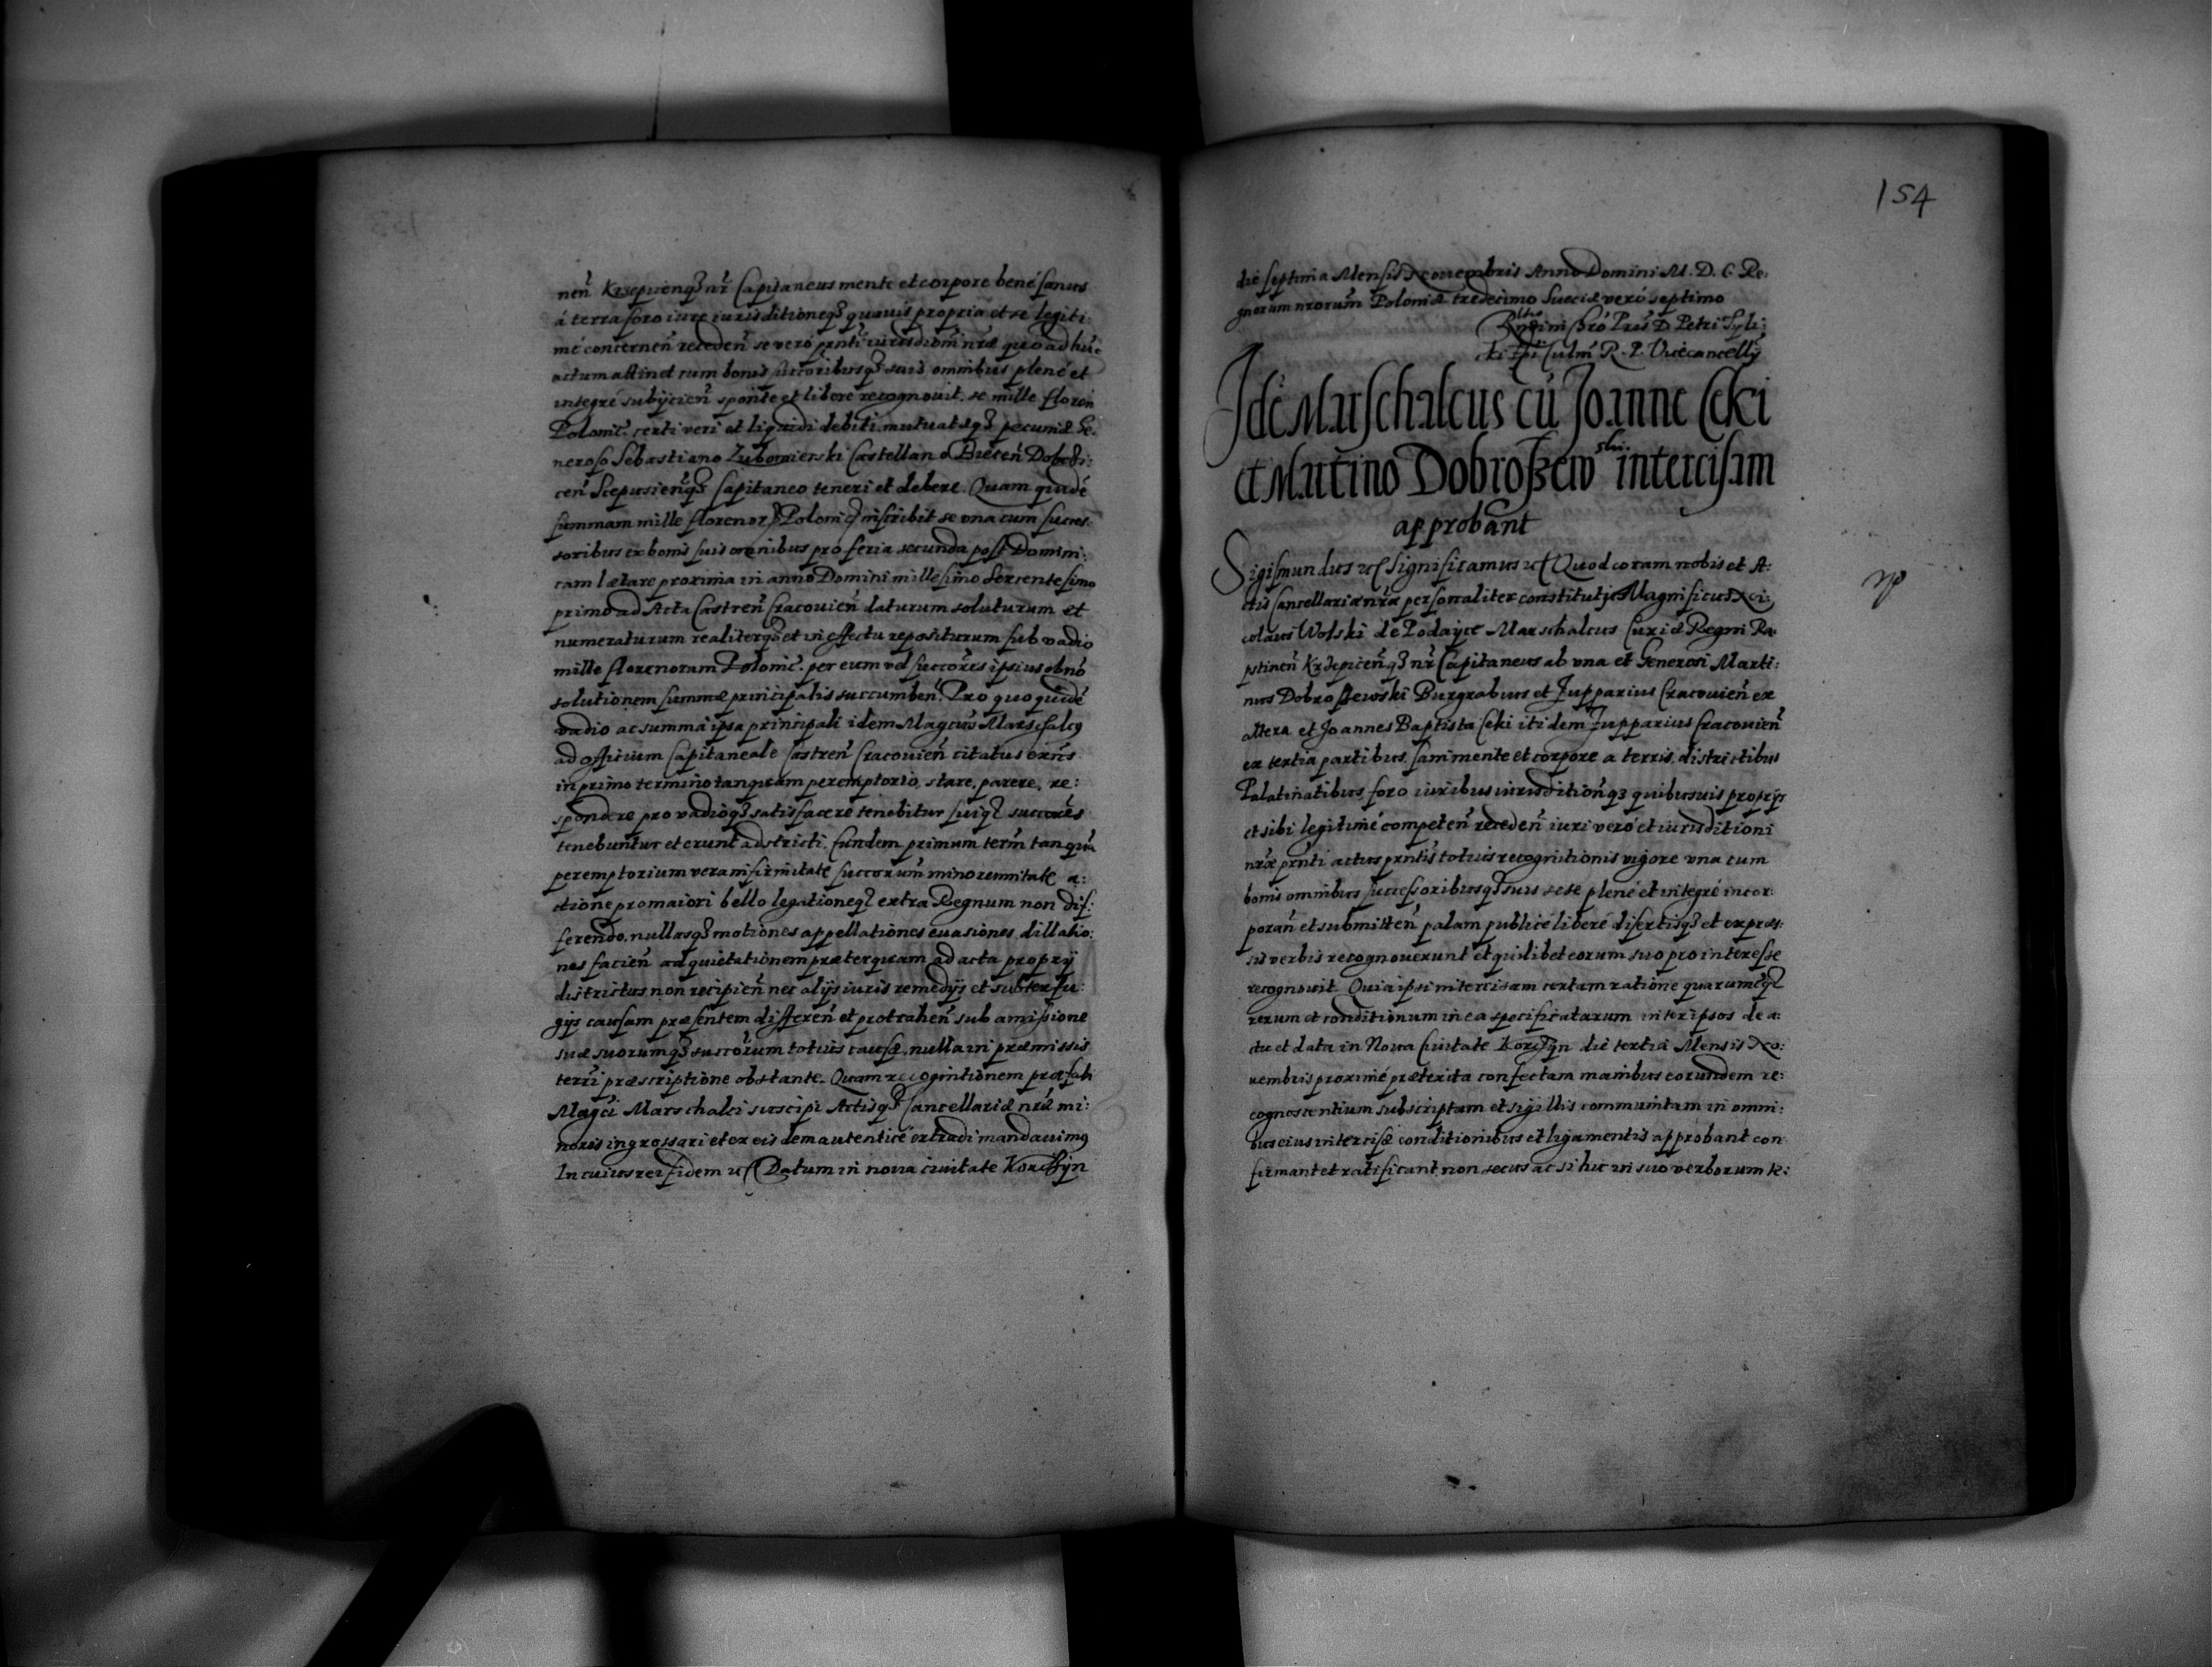 neñ Krzepicenq₃ nr̃ Capitaneus mente et corpore bené sanus
á terra foro iure iurisditioneq₃ quauis propria et se legiti:
mé concerneñ recedeñ se vero prñti iurisdiom̃ nr̃æ quo ad hũc
actum attinet cum bonis succoribusq₃ suis omnibus plené et
integré subijcieñ sponte et libere recognouit. se mille floren
Polonic̃. certi veri et liquidi debiti mutuatæq₃ pecuniæ Ge:
neroso Sebastiano Lubomierski Castellano Bieceñ Dobczi:
ceñ Scepusieñq₃ Capitaneo teneri et debere. Quam quidé
summam mille florenor Polonic inscribit se vna cum succes:
soribus ex bonis suis omnibus pro feria secunda post Domini:
cam lætare proxima in anno Domini millesimo Sexcentesimo
primo ad Acta Castreñ Cracouieñ daturum soluturum et
numeraturum realiterq₃ et in effectu repositurum sub vadio
mille florenorum Polonic̃. per eum vel succor̃es ipsius ob nõ
solutionem summæ principalis succumbeñ. Pro quo quidé
vadio ac summa ipsa principali idem Magcus Marschalcꝯ
ad officium Capitaneale Castreñ Cracouieñ citatus
in primo termino tanquam peremptorio, stare, parere, re:
spondere pro vadioq₃ satisfacere tenebitur suiq₃ succor̃es
tenebuntur et erunt adstricti. Eundem primum term̃ tanquã
peremptorium vera infirmitate succorum̃ minorennitate a:
ctione pro maiori bello legationeq₃ extra Regnum non dif:
ferendo, nullasq₃ motiones appellationes euasiones, dillatio:
nes facieñ ad quietationem præterquam ad acta proprij
districtus non recipieñ nec alijs iuris remedijs et subterfu:
gijs causam præsentem differeñ et protraheñ sub amissione
suæ suorumq₃ succor̃um totius causæ, nulla in præmissis
terr̃i præscriptione obstante. Quam recognitionem præfati
Magc̃i Marschalci suscipi Actisq₃ Cancellariæ nr̃æ mi:
noris ingrossari et ex eis dem autenticé extradi mandauimꝯ
In cuius rei fidem etc Datum in noua ciuitate Korczÿn
154
die septima Mensis Nouembris Anno Domini M. D. C. Re:
gnorum nrorum̃ Poloniæ tredecimo Sueciæ veró septimo
Petri Tyli:
cki Culm̃ R. P. Vicecancellÿ
Idẽ Marschalcus cũ Joanne Ceki
et Martino Dobroszew ski intercisam
approbant
Sigismundus etc Significamus etc Quod coram nobis et A:
ctis Cancellariæ nr̃æ personaliter constituti Magnificus Ni:
colaus Wolski de Podaÿce Marschalcus Curiæ Regni Ra:
pstineñ Krzepiceñq₃ nr̃ Capitaneus ab vna et Generosi Marti:
nus Dobroszewski Burgrabius et Jupparius Cracouieñ ex
altera et Joannes Baptista Ceki itidem Jupparius Cracouieñ
ex tertia partibus, sani mente et corpore a terris, districtibus
Palatinatibus foro iuribus iurisditionq₃ quibusuis proprijs
et sibi legitimé competeñ recedeñ iuri veró et iurisditioni
nr̃æ prñti actus prñtis totius recognitionis vigore vna cum
bonis omnibus successoribusq₃ suis sese plené et integré incor:
poran̄ et submitteñ palam publicé liberé disertisq₃ et expres:
sis verbis recognouerunt et quilibet eorum suo pro interesse
recognouit. Quia ipsi intercisam certam ratione quarumcq₃
rerum et conditionum in ea specificatarum inter ipsos de a:
ctu et data in Noua Ciuitate Korczÿn die tertia Mensis No:
uembris proximé præterita confectam manibus eorundem re:
cognoscentium subscriptam et sigillis communitam in omni:
bus eius intercisæ conditionibus et ligamentis approbant con
firmant et ratificant non secus ac si hic in suo verborum te: